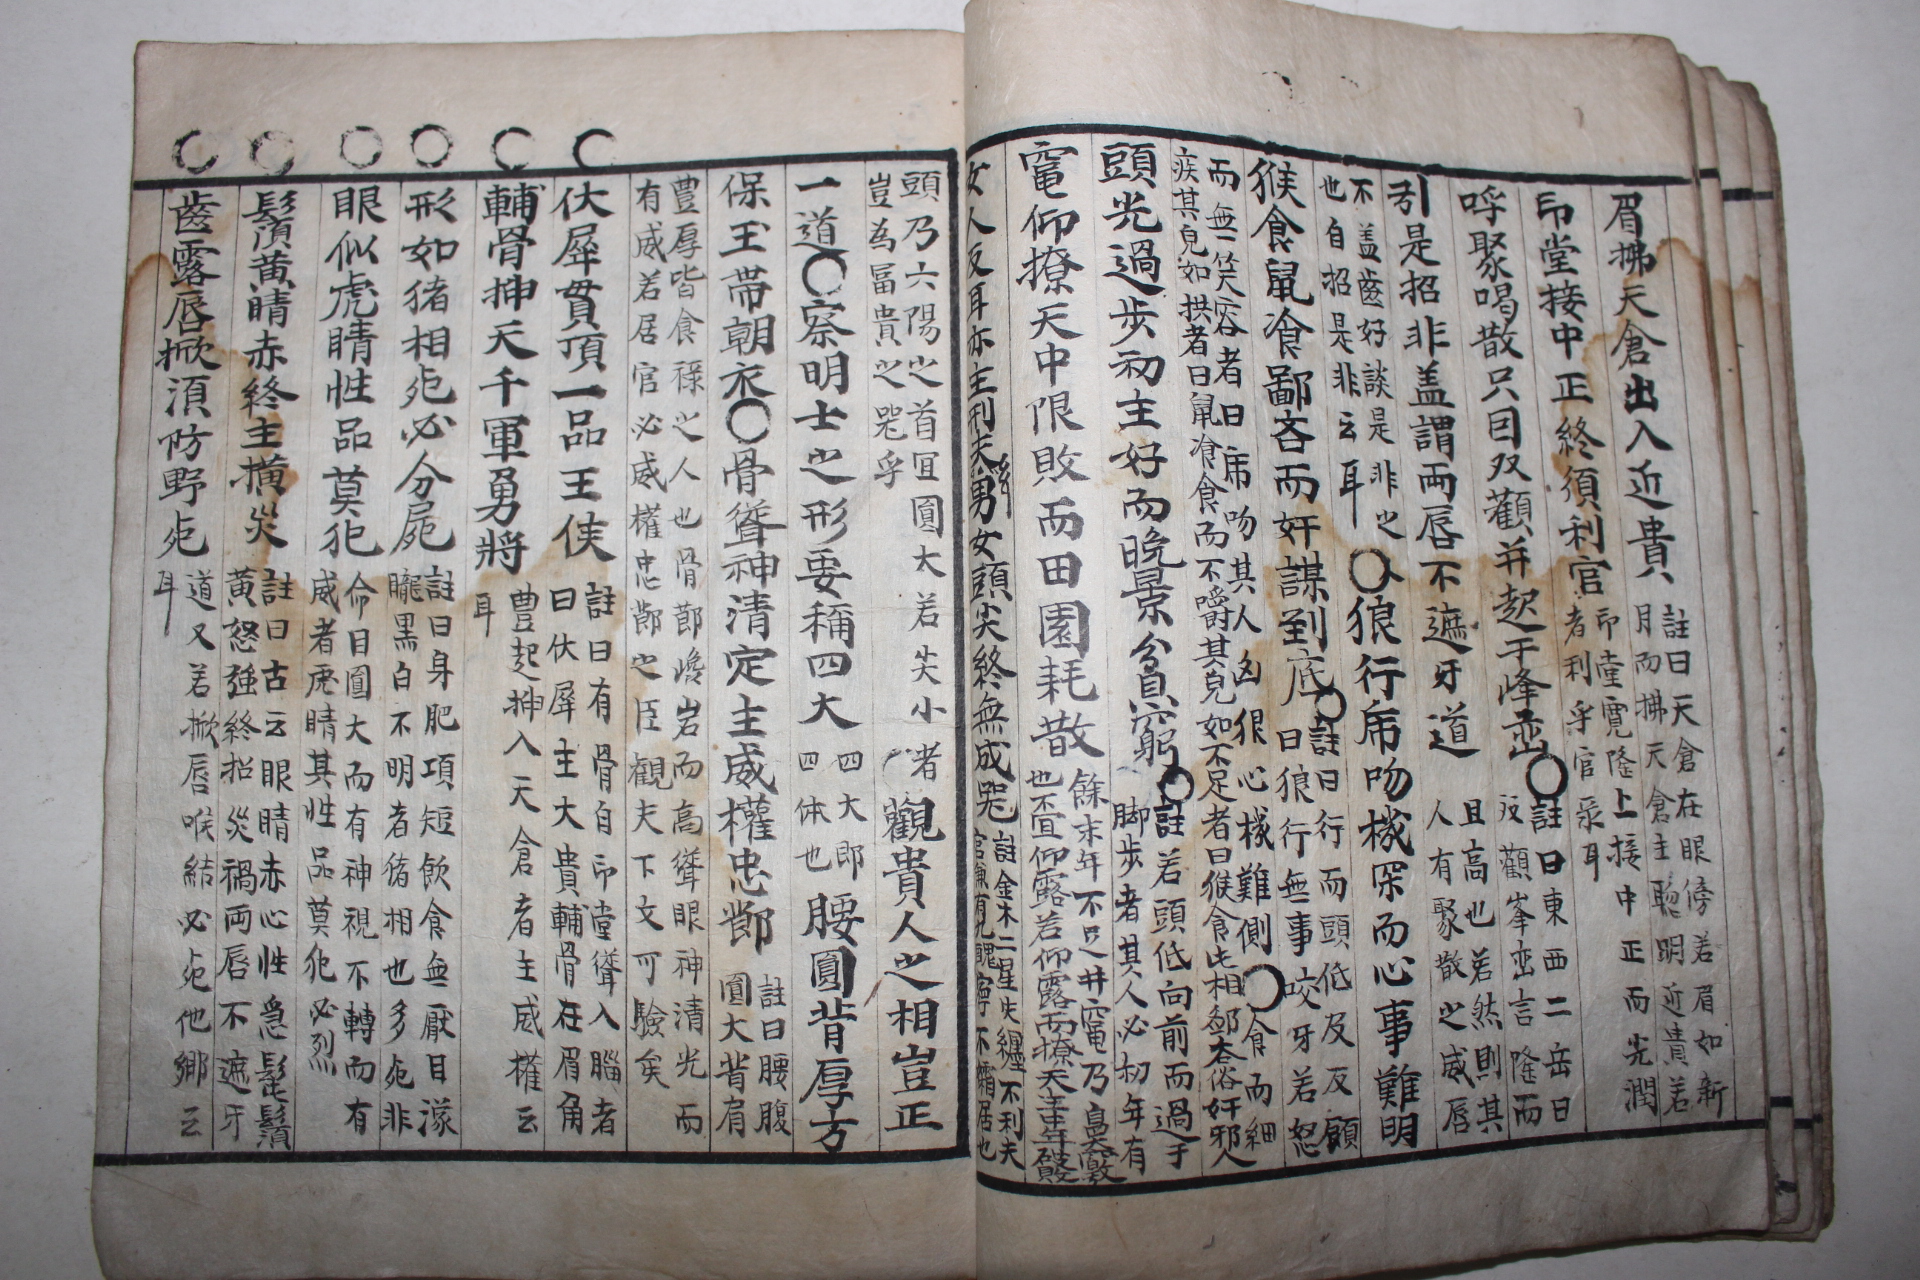 眉拂天倉出入近貴 註曰天倉在眼傍若眉如新
月而拂天倉主聰明近貴若
印堂接中正終須利官 印堂寬隆上接中正而光潤
者利乎官永耳
呼聚喝散只因双顴并起于峰巒 註曰東西二岳曰
顴峯巒言隆而
且高也若然則其
人有聚散之威唇
引是招非盖謂兩唇不遮牙道
不盖齒好談是非之
也自招是非云耳
狼行席吻機深而心事難明
註曰行而頭低及反顧
曰狼行無事咬牙若怒
而無笑容者曰席吻其人凶狠心機難側
猴食鼠飡鄙吝而奸謀到底
食而細
疾其皃如拱者曰鼠飡食而不嚼其皃如不足者曰猴食此相鄙吝俗奸邪人
頭光過步初主好而晚景貧窮 註若頭低向前而過于
脚步者其人必初年有
餘末年不足井竈乃
竈仰撩天中限敗而田園耗散
也不宜仰露若仰露而撩天主
女人反耳亦主刑夫男女頭尖終無成哭
註金木二星失纏不利夫
觀貴人之相豈正
頭乃六陽之首宜圓大若尖小者
豈為冨貴之哭乎
一道察明士之形要稱四大 四大郎
四体也 腰圓背厚方
保玉帶朝衣骨聳神清定主威權忠鄧 註曰腰腹
圓大背肩
豊厚皆食祿之人也骨鄧巉岩而高聳眼神清光而
有威若居官必威權忠鄧之臣觀夫下文可驗矣
伏犀貫頂一品王侯 註曰有骨自印堂聳入腦者
曰伏犀主大貴輔骨在眉角
輔骨揷天千軍勇將 豊起揷入天倉者主威權云
耳
形如猪相死必分屍 註曰身肥項短飲食無厭目濛
矓黒白不明者猪相也多死非
眼似虎睛性品莫犯 命目圓大而有神視不轉而有
威者虎睛其性品莫犯必烈
鬚黄睛赤終主橫灾 註曰古云眼睛赤心性急髭鬚
黄怒强終招災禍兩唇不遮牙
齒露唇掀湏防野死 道又若掀唇喉結必死他鄉云
耳